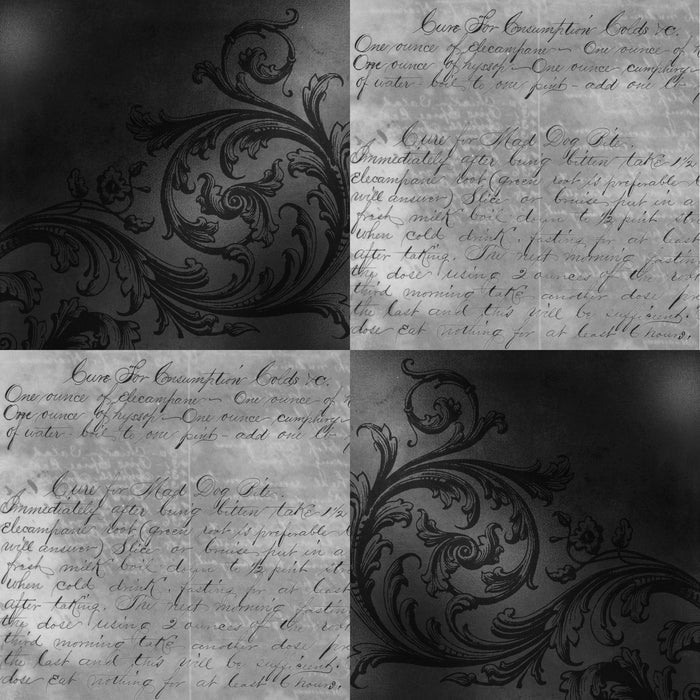 Cure For Consumption Colds &c.
One ounce of elecampane — One ounce of
One ounce of hyssop — One ounce cumphry
of water - boil to one pint - add one
Cure for Mad Dog Bite
Immediately after being bitten take 1½
Elecampane root (green root is preferable
will answer) Slice or bruise put in a
fresh milk boil down to ½ pint
when cold drink, fasting for at least
after taking. The next morning fasting
the dose using 2 ounces of the
third morning take another dose
the last and this will be sufficient.
dose eat nothing for at least 6 hours.
Cure For Consumption Colds &c.
One ounce of elecampane — One ounce of
One ounce of hyssop — One ounce cumphry
of water - boil to one pint - add one
Cure for Mad Dog Bite
Immediately after being bitten take 1½
Elecampane root (green root is preferable
will answer) Slice or bruise put in a
fresh milk boil down to ½ pint
when cold drink, fasting for at least
after taking. The next morning fasting
the dose using 2 ounces of the
third morning take another dose
the last and this will be sufficient.
dose eat nothing for at least 6 hours.